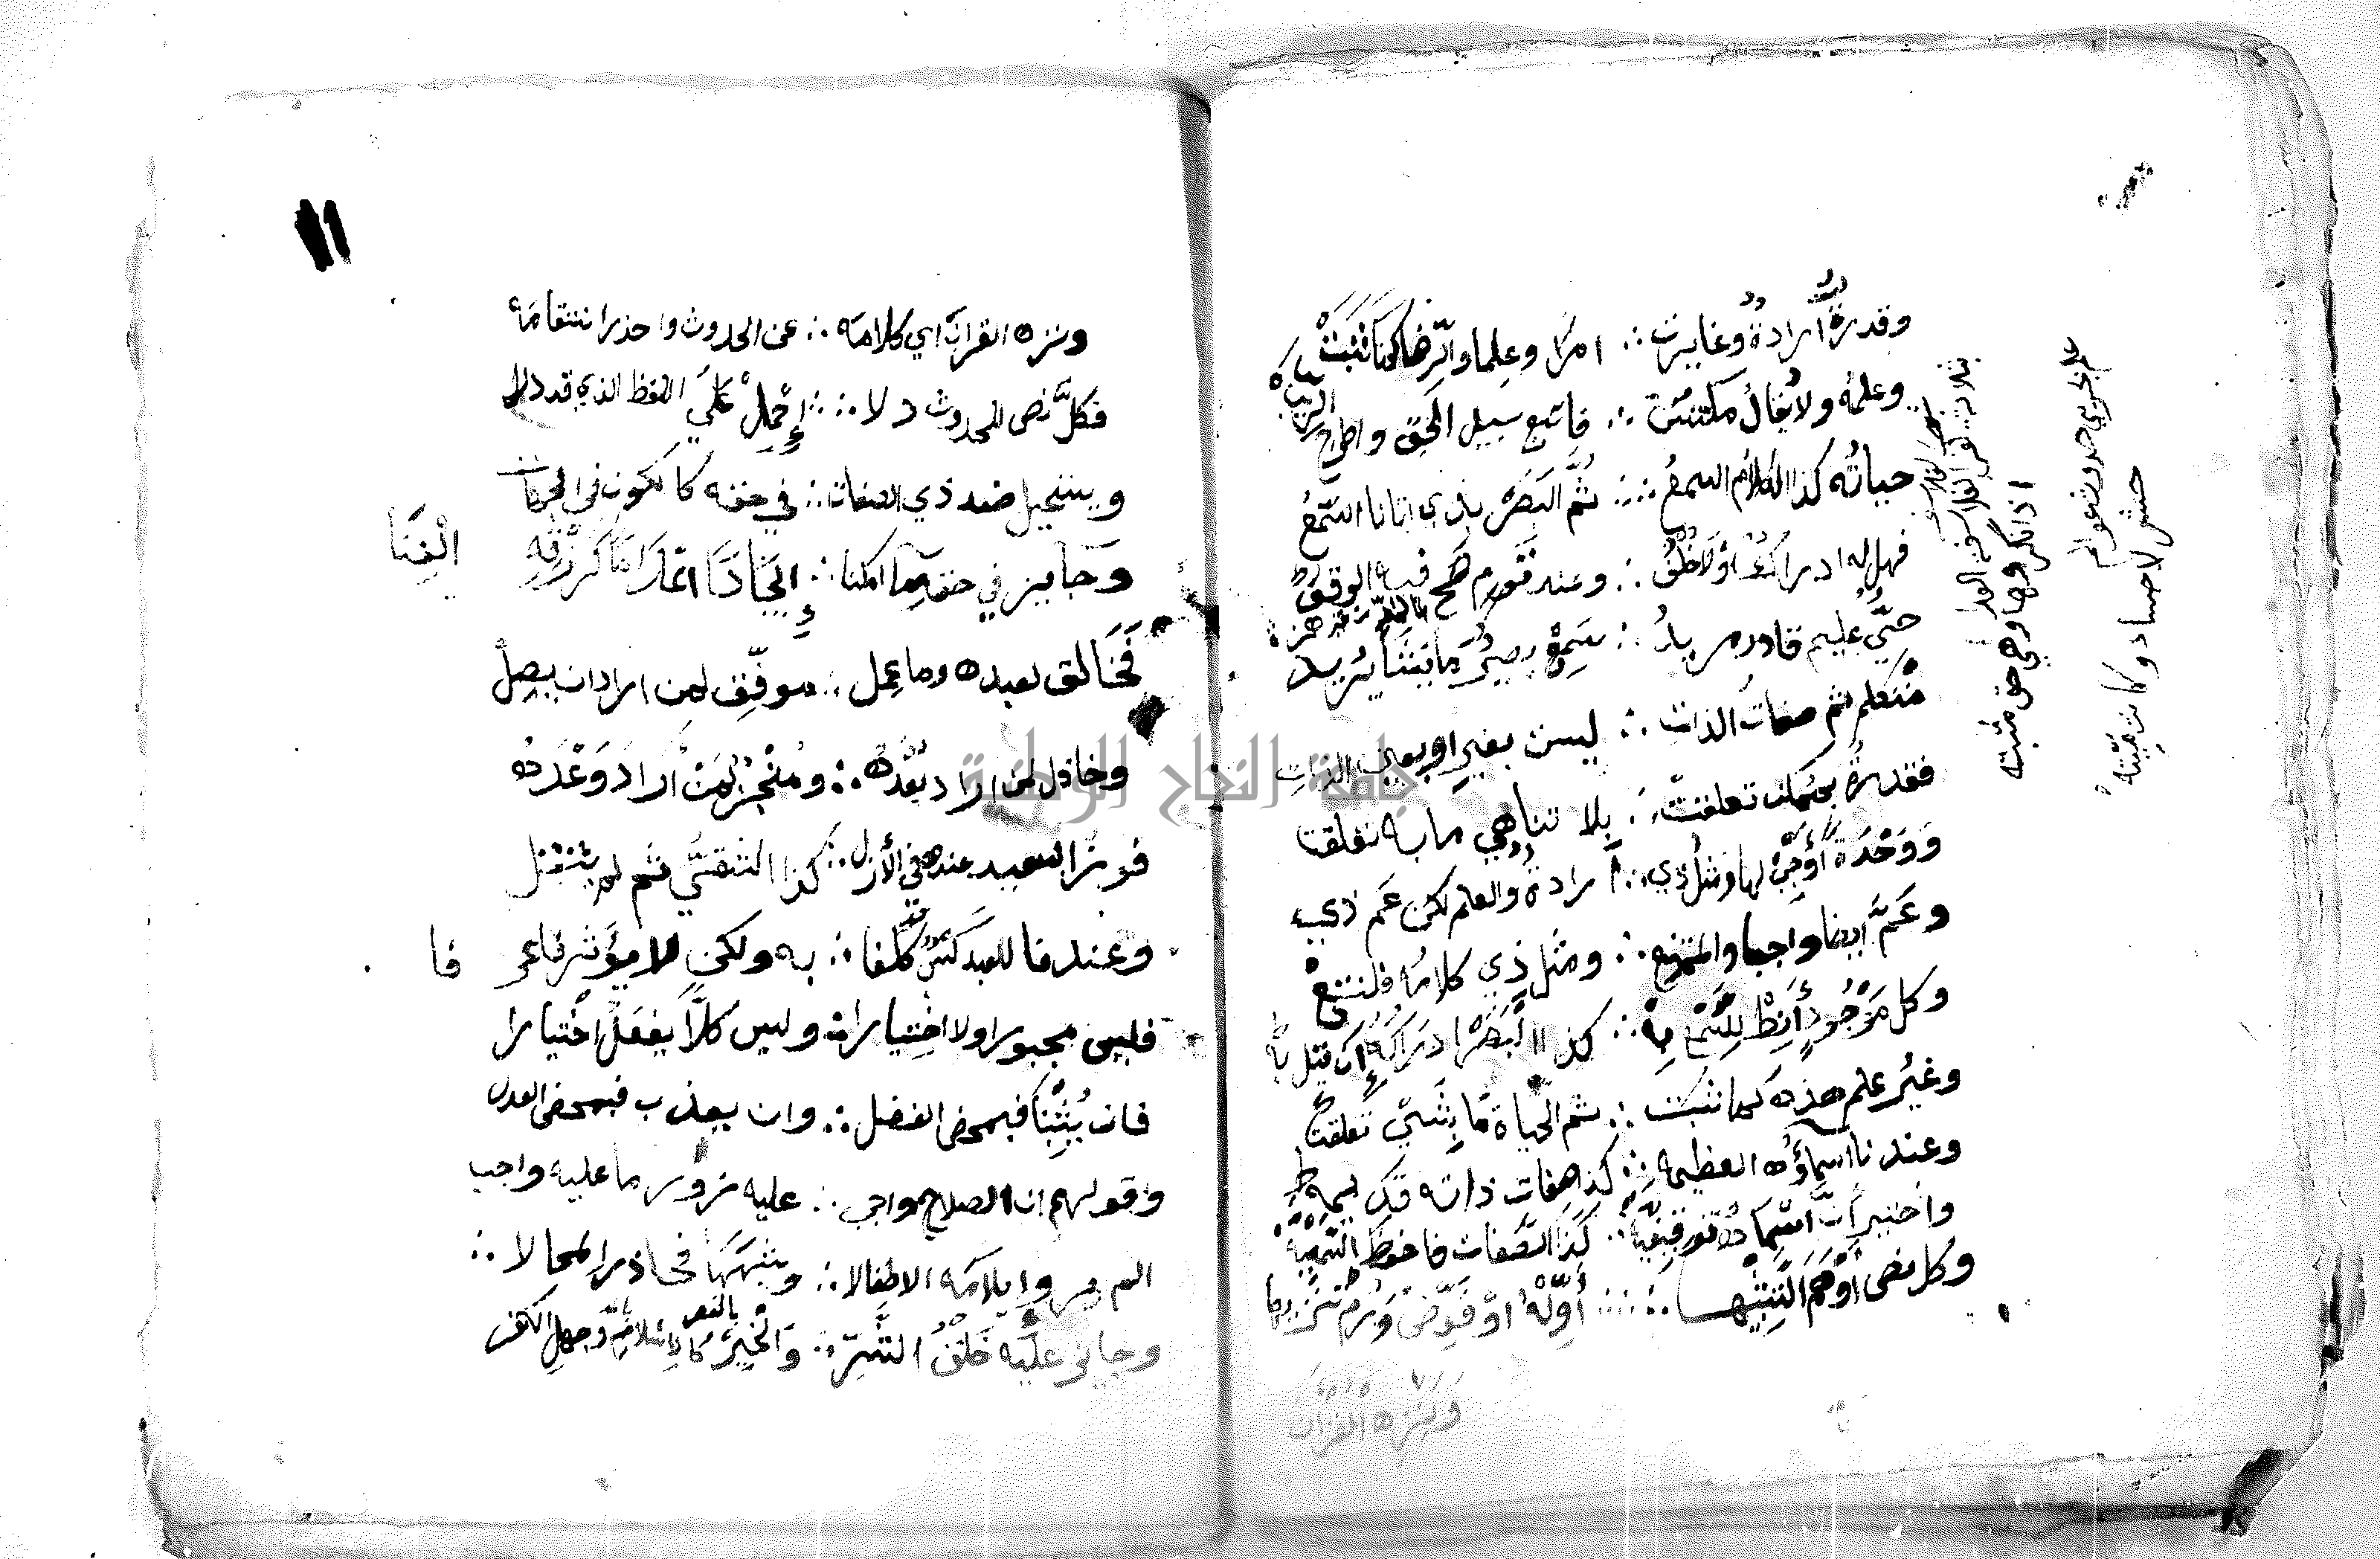 وقدرة ارادة وغايرت ∴ امرا وعلما والرضا كما ثبت
وعلمه ولا يقال مكتسب ∴ فاتبع سبيل الحق واطرح الريب
حياته كذا الكلام السمع ∴ ثم البصر بذي اتانا السمع
فهل له ادراك أو لا خلف ∴ وعند قوم صح فيه الوقف
حي عليم قادر مريد ∴ سمع بصير ما يشا يريد
متكلم ثم صفات الذات ∴ ليست بغير او بعين الذات
فقدرة بممكن تعلقت ∴ بلا تناهي ما به تعلقت
ووحدة أوجب لها ومثل ذي ∴ ارادة والعلم لكن عم ذي
وعم ايضا واجبا والممتنع ∴ ومثل ذي كلامه فلنتبع
وكل موجود أنط للسمع به ∴ كذا البصر ادراكه إن قيل به
وغير علم هذه كما ثبت ∴ ثم الحياة ما بشي تعلقت
وعندنا اسماؤه العظيمه ∴ كذا صفات ذاته قديمه
واختير أن اسماه توقيفيه ∴ كذا الصفات فاحفظ السمعيه
وكل نص أوهم التشبيها ∴ أوله او فوض ورم تنزيها
ونزه القران
اذ انكروها وهي حق مثبته
ونزه القران اي كلامه ∴ عن الحدوث واحذر انتقامه
فكل نص للحدوث دلا ∴ إحمل على اللفظ الذي قد دلا
ويستحيل ضد ذي الصفات ∴ في حقه كالكون في الجهات
وجايز في حقه ما امكنا ∴ إيجادا اعداما كرزقه الغنا
فخالق لعبده وما عمل ∴ موفق لمن اراد ان يصل
وخاذل لمن اراد بعده ∴ ومنجز لمن اراد وعده
فوز السعيد عنده في الأزل ∴ كذا الشقي ثم لم ينتقل
وعندنا للعبد كسب كلفا ∴ به ولكن لا يؤثر فاعرفا
فليس مجبورا ولا اختيارا ∴ وليس كلا يفعل اختيارا
فان يثبنا فبمحض الفضل ∴ وان يعذب فبمحض العدل
وقولهم ان الصلاح واجب ∴ عليه زور ما عليه واجب
الم يروا إيلامه الاطفالا ∴ وشبهها فحاذر المحالا ∴
وجايز عليه خلق الشر ∴ والخير كالاسلام وجهل الكفر